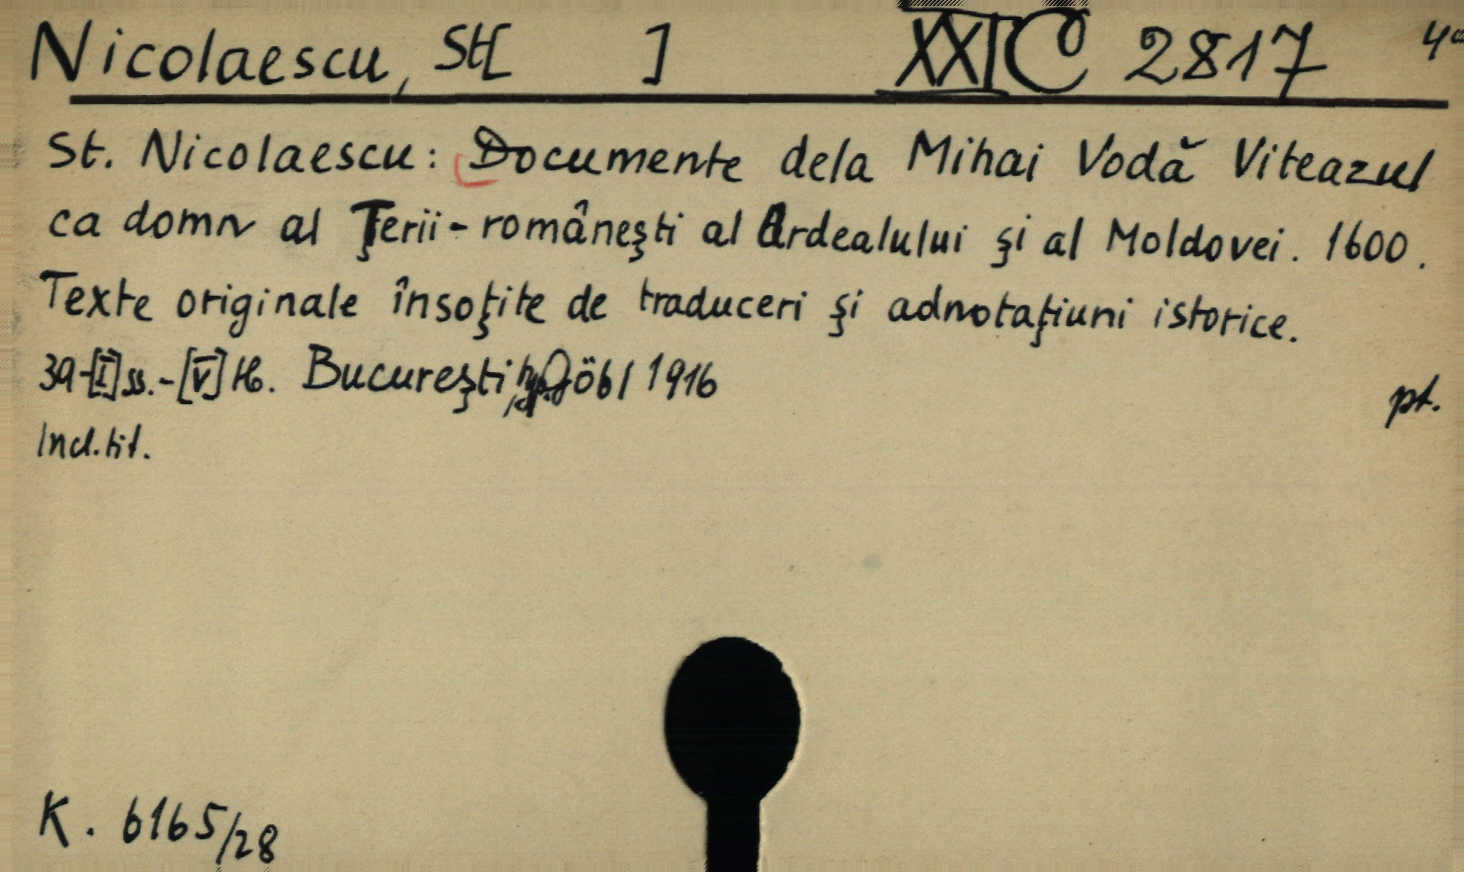 Nicolaescu, St[ ] XXI C 2817 4°
St. Nicolaescu: Documente dela Mihai Vodă Viteazul
ca domn al Ţerii-româneşti al Ardealului şi al Moldovei. 1600.
Texte originale însoţite de traduceri şi adnotaţiuni istorice.
39-[I] ss.-[V] tb. Bucureşti, Göbl 1916 pt.
Incl. tit.
K. 6165/28